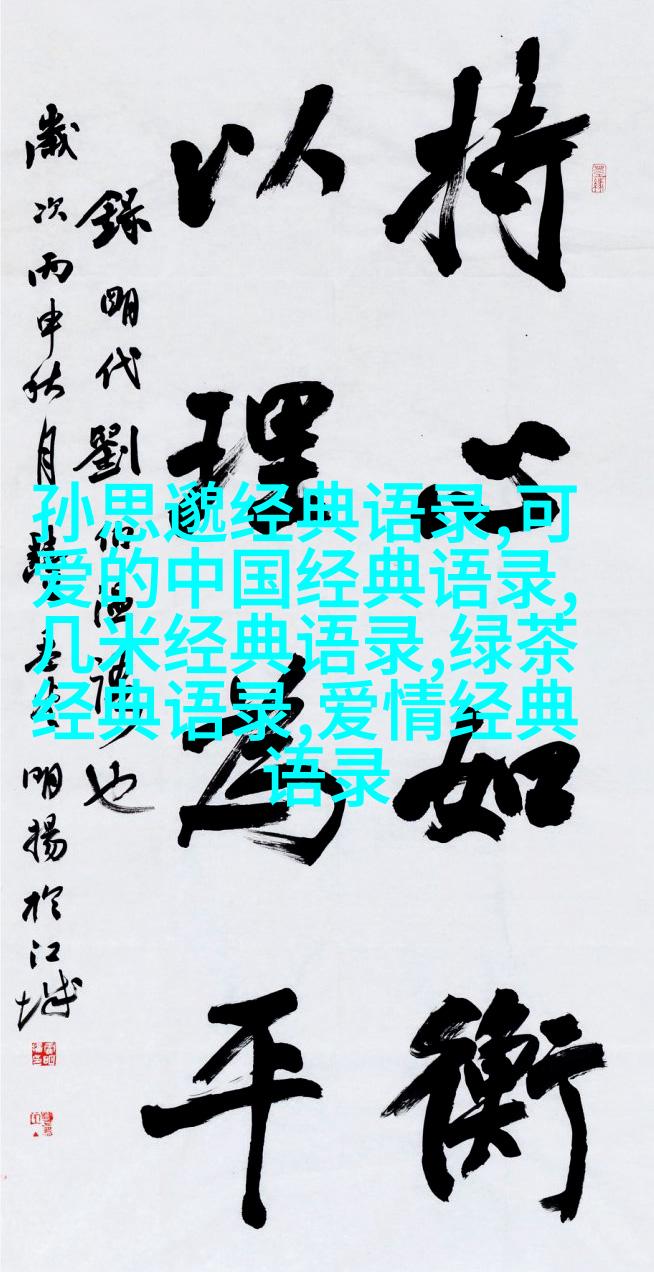 持心如衡
以理为平
録明代劉伯温語也
歲次丙申秋月
明揚於江城
孙思邈经典语录,可
爱的中国经典语录,
几米经典语录,绿茶
经典语录,爱情经典
语录